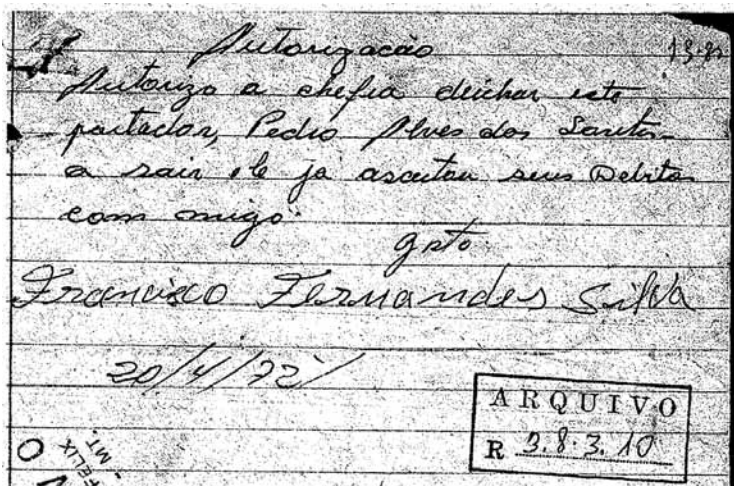 Autorização
13.8
Autorizo a chefia deichar este
portador, Pedro Alves dos Santos
a sair ele ja aseitou seus Debitos
com migo.
grto
Francisco Fernandes Silva
20/4/72
ARQUIVO
R 3.8.3.10
FELIX
- MT.